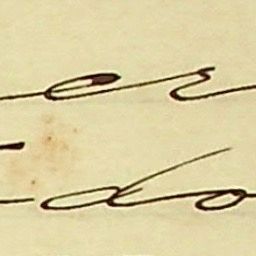 er
do